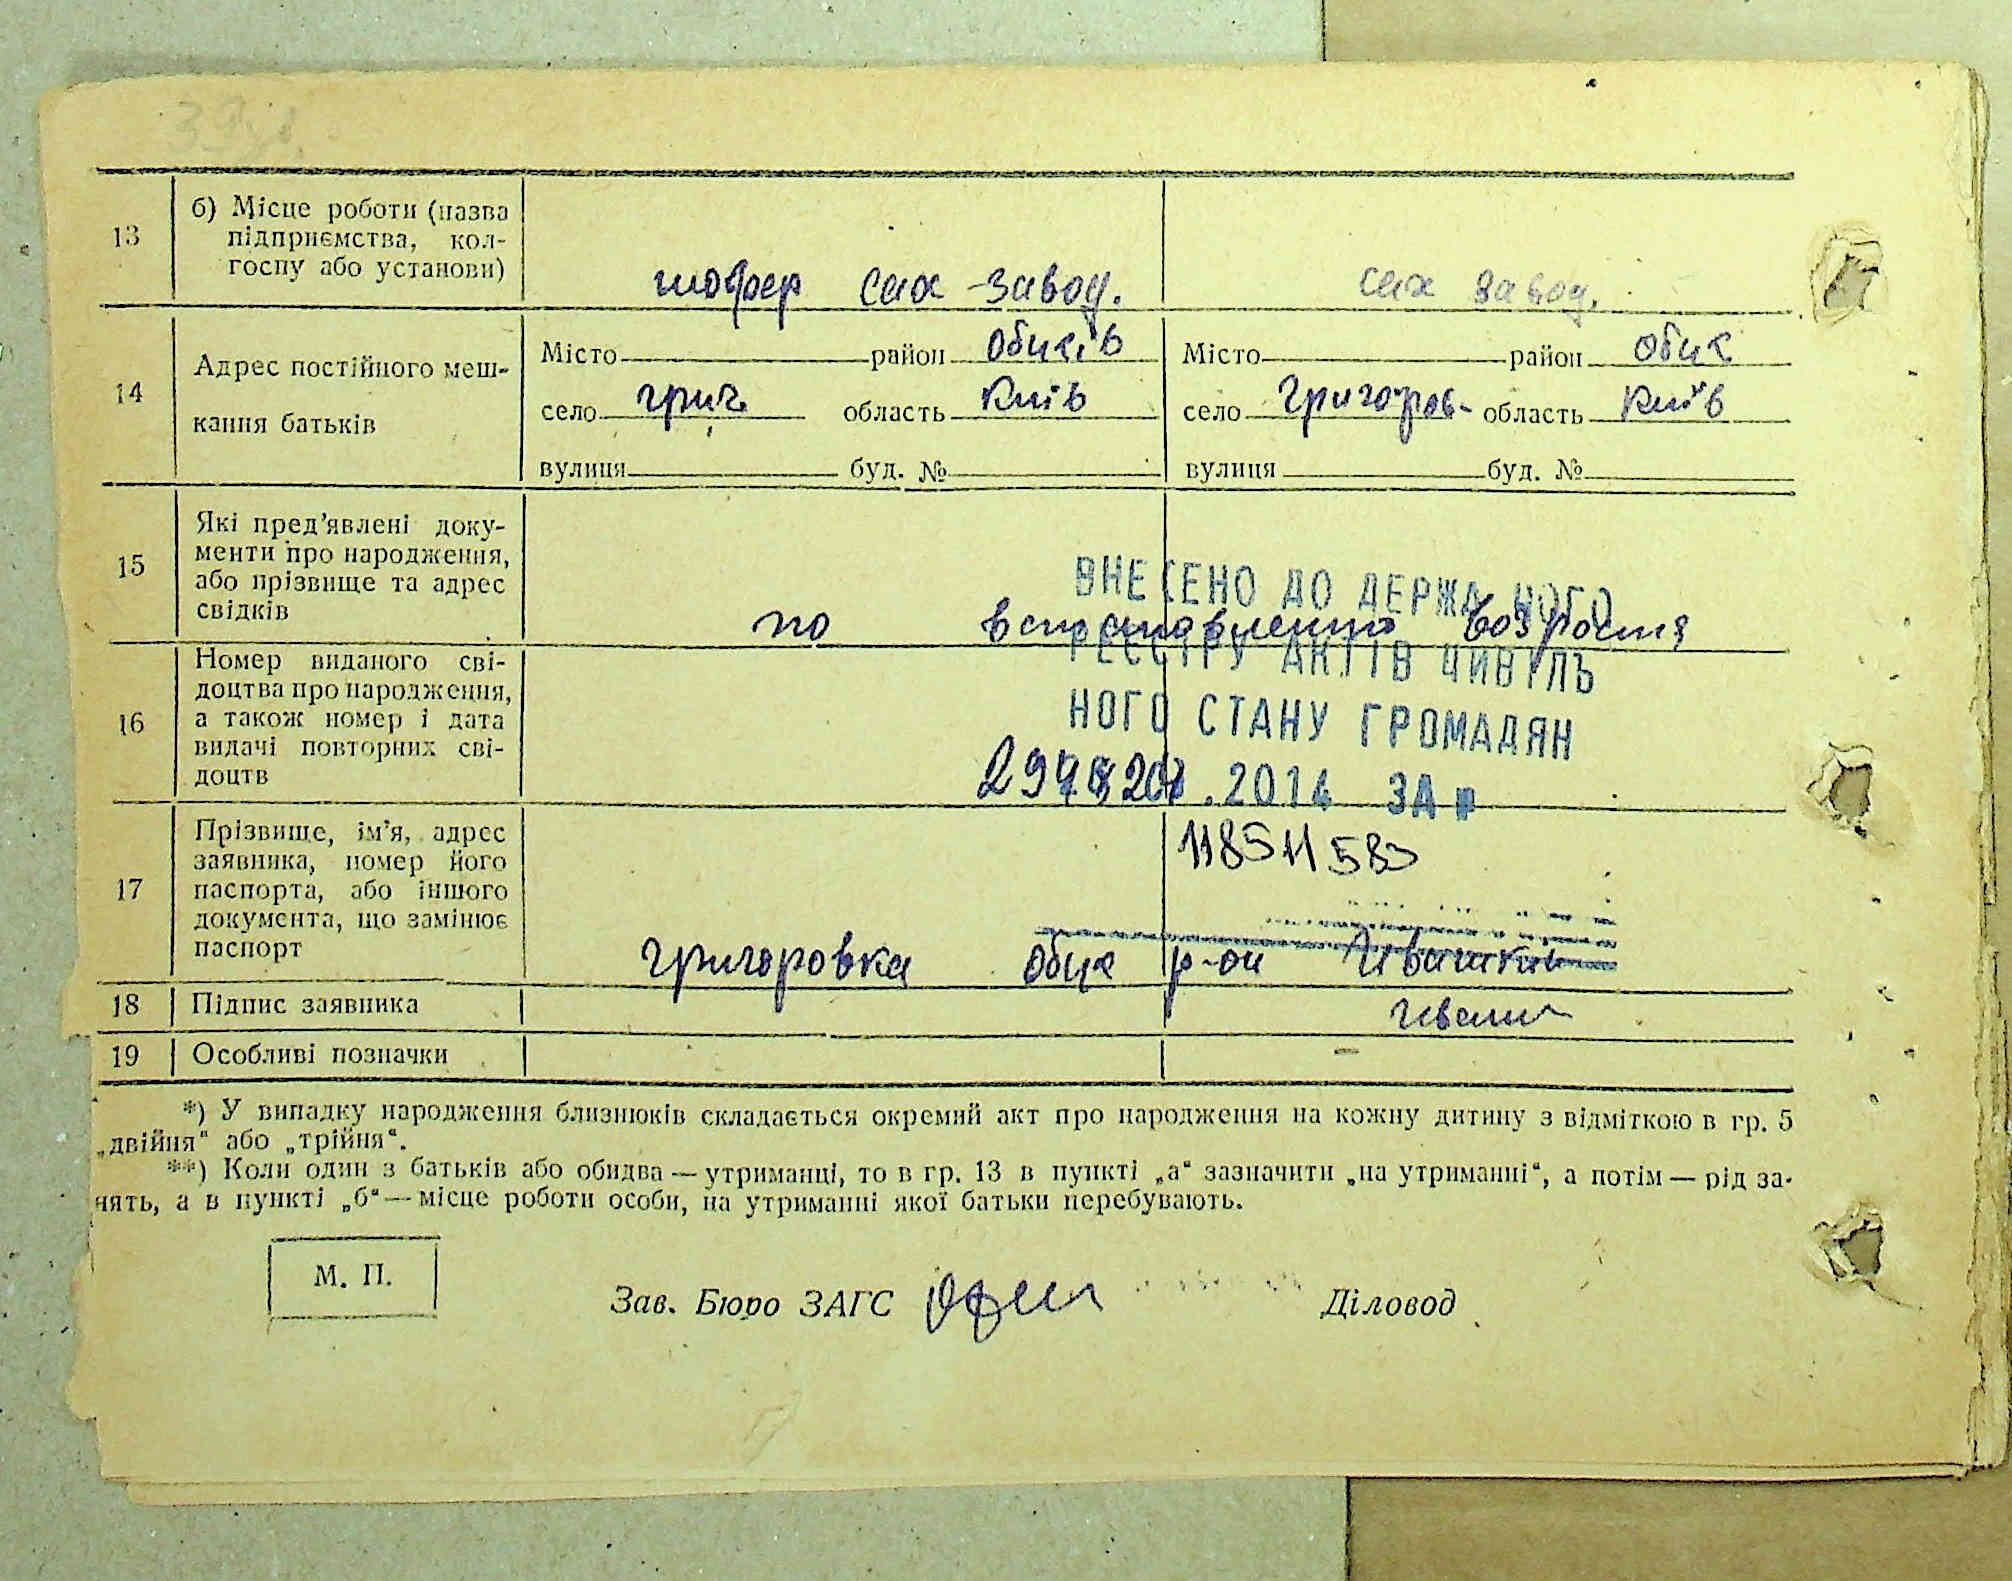 13
б) Місце роботи (назва
підприємства, кол-
госпу або установи)
шофер сах завод.
сах завод.
14
Адрес постійного меш-
кання батьків
Місто район Обухів
село григ область Київ
вулиця буд. №
Місто район Обух
село Григоров- область Київ
вулиця буд. №
15
Які пред'явлені доку-
менти про народження,
або прізвище та адрес
свідків
по встановленню возроста
ВНЕСЕНО ДО ДЕРЖА НОГО
РЕЄСТРУ АКТІВ ЦИВІЛЬ
НОГО СТАНУ ГРОМАДЯН
.2014 ЗА р
16
Номер виданого сві-
доцтва про народження,
а також номер і дата
видачі повторних сві-
доцтв
17
Прізвище, ім'я, адрес
заявника, номер його
паспорта, або іншого
документа, що замінює
паспорт
11851158
григоровка Обух р-он Ивашків
18
Підпис заявника
19
Особливі позначки
–
*) У випадку народження близнюків складається окремий акт про народження на кожну дитину з відміткою в гр. 5
„двійня“ або „трійня“.
**) Коли один з батьків або обидва — утриманці, то в гр. 13 в пункті „а“ зазначити „на утриманні“, а потім — рід за-
нять, а в пункті „б“ — місце роботи особи, на утриманні якої батьки перебувають.
М. П.
Зав. Бюро ЗАГС
Діловод